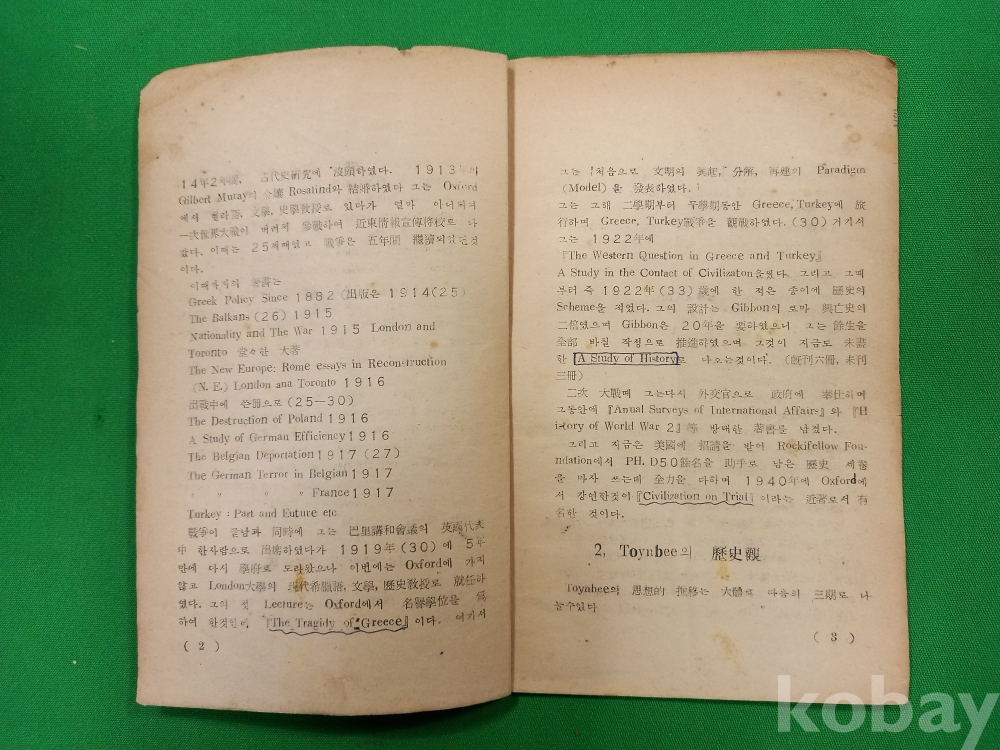 14年2年間, 古代史硏究에 沒頭하였다. 1913年의
Gilbert Muray의 令孃 Rosalind와 結婚하였다 그는 Oxford
에서 헬라語, 文學, 史學敎授로 있다가 얼마 아니되여
一次世界大戰이 버러져 參戰하여 近東情報宣傳將校로 나
갔다. 이때는 25세때였고 戰爭은 五年間 繼續되었든것
이다.
이때까지의 著書는
Greek Policy Since 1882 (出版은 1914(25)
The Balkans (26) 1915
Nationality and The War 1915 London and
Toronto 堂々한 大著
The New Europe: Rome essays in Reconstruction
(N. E.) London ana Toronto 1916
出戰中에 쓴冊으로 (25—30)
The Destruction of Poland 1916
A Study of German Efficiency 1916
The Belgian Deportation 1917 (27)
The German Terror in Belgian 1917
〃 〃 〃 France 1917
Turkey : Part and Euture etc
戰爭이 끝남과 同時에 그는 巴里講和會議의 英國代表
中 한사람으로 出席하였다가 1919年 (30) 에 5年
만에 다시 學府로 도라왔으나 이번에는 Oxford에 가지
않고 London大學의 現代希臘語, 文學, 歷史敎授로 就任하
였다. 그의 첫 Lecture는 Oxford에서 名譽學位을 爲
하여 한것인데 『The Tragidy of Greece』이다. 여기서
( 2 )
그는 처음으로 文明의 興起, 分解, 再建의 Paradigm
(Model) 을 發表하였다.
그는 그해 二學期부터 두學期동안 Greece, Turkey에 旅
行하며 Greece, Turkey戰爭을 觀戰하였다. (30) 거기서
그는 1922年에
『The Western Question in Greece and Turkey』
A Study in the Contact of Civilizaton을썼다. 그리고 그때
부터 즉 1922年 (33) 歲에 한 적은 종이에 歷史의
Scheme을 적었다. 그의 設計는 Gibbon의 로마 興亡史의
二倍였으며 Gibbon은 20年을 要하였으니 그는 餘生을
全部 바칠 작정으로 推進하였으며 그것이 지금도 未盡
한 A Study of History로 나오는것이다. (旣刊六冊, 未刊
三冊)
二次 大戰때 그는다시 外交官으로 政府에 奉仕하며
그동안에 『Anual Surveys of International Affairs』와 『H
istory of World War 2』等 방대한 著書를 남겼다.
그리고 지금은 美國에 招請을 받어 Rockifellow Fou-
ndation에서 PH. D50餘名을 助手로 남은 歷史 세卷
을 마자 쓰는데 全力을 다하며 1940年에 Oxford에
서 강연한것이 『Civilization on Trial』이라는 近著로서 有
名한 것이다.
2, Toynbee의 歷史觀
Toynbee의 思想的 推移는 大體로 다음의 三期로 나
눌수있다
( 3 )
kobay